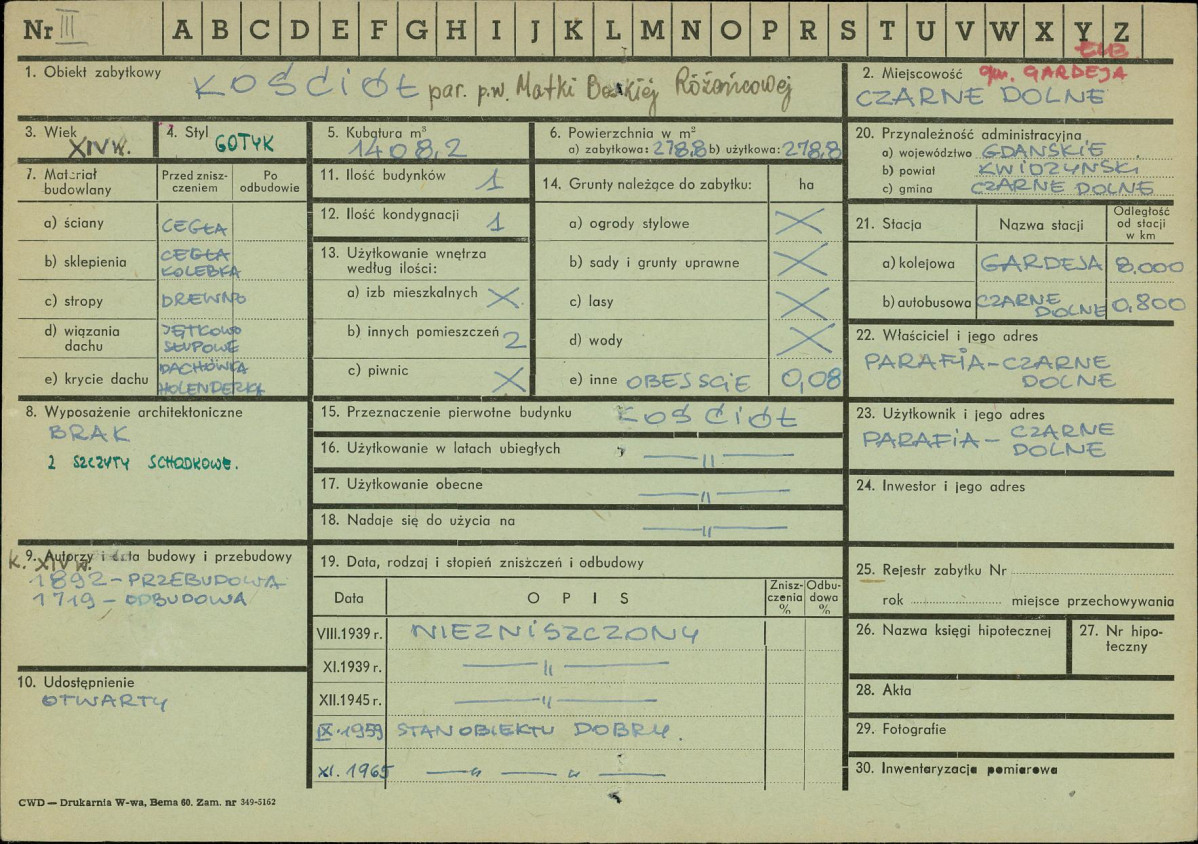 Nr III A B C D E F G H I J K L M N O P R S T U V W X Y Z
ELB
1. Obiekt zabytkowy
KOŚCIÓŁ par. p.w. Matki Boskiej Różańcowej
2. Miejscowość gm. GARDEJA
CZARNE DOLNE
3. Wiek
XIV w.
4. Styl
GOTYK
5. Kubatura m³
1408,2
6. Powierzchnia w m²
a) zabytkowa: 278,8 b) użytkowa: 278,8
20. Przynależność administracyjna
a) województwo GDAŃSKIE
b) powiat KWIDZYŃSKI
c) gmina CZARNE DOLNE
7. Materiał budowlany
Przed znisz-
czeniem
Po
odbudowie
a) ściany CEGŁA
b) sklepienia CEGŁA
KOLEBKA
c) stropy DREWNO
d) wiązania
dachu
JĘTKOWO
SŁUPOWE
e) krycie dachu DACHÓWKA
HOLENDERKA
11. Ilość budynków 1
12. Ilość kondygnacji 1
13. Użytkowanie wnętrza
według ilości:
a) izb mieszkalnych X
b) innych pomieszczeń 2
c) piwnic X
14. Grunty należące do zabytku: ha
a) ogrody stylowe X
b) sady i grunty uprawne X
c) lasy X
d) wody X
e) inne OBESSCIE 0,08
21. Stacja Nazwa stacji Odległość
od stacji
w km
a) kolejowa GARDEJA 8.000
b) autobusowa CZARNE
DOLNE 0,800
22. Właściciel i jego adres
PARAFIA - CZARNE
DOLNE
8. Wyposażenie architektoniczne
BRAK
2 SZCZYTY SCHODKOWE.
15. Przeznaczenie pierwotne budynku KOŚCIÓŁ
16. Użytkowanie w latach ubiegłych — „ —
17. Użytkowanie obecne — „ —
18. Nadaje się do użycia na — „ —
23. Użytkownik i jego adres
PARAFIA - CZARNE
DOLNE
24. Inwestor i jego adres
9. Autorzy i data budowy i przebudowy
k. XIV w.
1892 - PRZEBUDOWA
1719 - ODBUDOWA
10. Udostępnienie
OTWARTY
19. Data, rodzaj i stopień zniszczeń i odbudowy
Data OPIS Znisz-
czenia
% Odbu-
dowa
%
VIII.1939 r. NIEZNISZCZONY
XI.1939 r. — „ —
XII.1945 r. — „ —
IX.1959 STAN OBIEKTU DOBRY.
XI.1965 — „ — „ —
25. Rejestr zabytku Nr
rok miejsce przechowywania
26. Nazwa księgi hipotecznej
27. Nr hipo-
teczny
28. Akta
29. Fotografie
30. Inwentaryzacja pomiarowa
CWD — Drukarnia W-wa, Bema 60. Zam. nr 349-5162